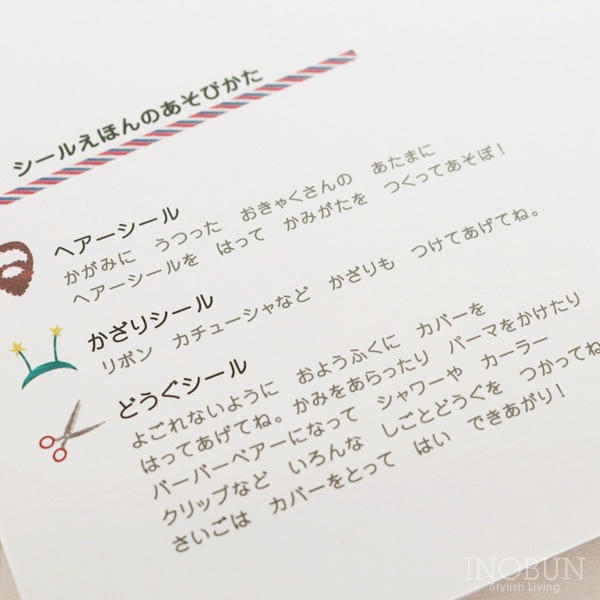 シールえほんのあそびかた
ヘアーシール
かがみに うつった おきゃくさんの あたまに
ヘアーシールを はって かみがたを つくってあそぼ！
かざりシール
リボン カチューシャなど かざりも つけてあげてね。
どうぐシール
よごれないように おようふくに カバーを
はってあげてね。かみをあらったり パーマをかけたり
バーバーベアーになって シャワーや カーラー
クリップなど いろんな しごとどうぐを つかってね
さいごは カバーをとって はい できあがり！
INOBUN
Stylish Living